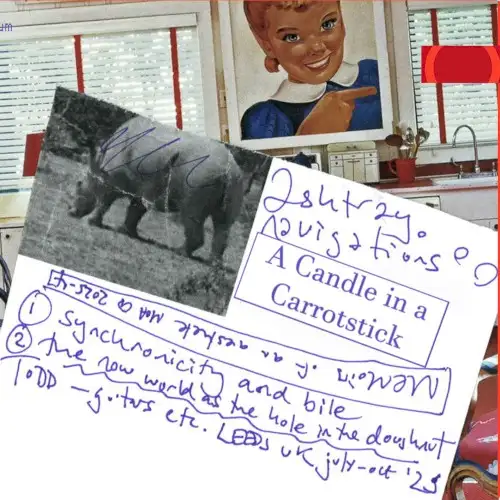 um
Ashtray.
navigations
A Candle in a
Carrotstick
Memoir of an aesthete MOA @ 2025-14
① synchronicity and bile
② the new world as the hole in the doughnut
TODD - guitars etc. LEEDS UK, july-oct '25